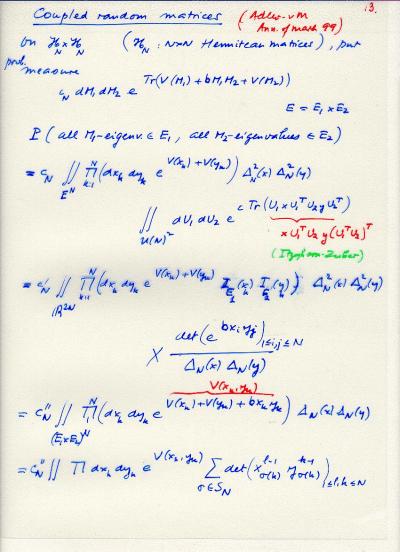 Coupled random matrices (Adler-vM
Ann. of math 99)
13.
On ℋ_N × ℋ_N (ℋ_N : N×N Hermitean matrices), put
prob. measure
c_N dM_1 dM_2 e^{Tr(V(M_1) + bM_1M_2 + V(M_2))}
E = E_1 × E_2
P(all M_1-eigenv. ∈ E_1, all M_2-eigenvalues ∈ E_2)
= c_N ∬_{E^N} ∏_{k=1}^N (dx_k dy_k e^{V(x_k)+V(y_k)}) Δ_N^2(x) Δ_N^2(y)
∬_{U(N)^2} dU_1 dU_2 e^{c Tr(U_1 x U_1^T U_2 y U_2^T)}
x U_1^T U_2 y (U_1^T U_2)^T
(Itzykson-Zuber)
= c'_N ∬_{ℝ^{2N}} ∏_{k=1}^N (dx_k dy_k e^{V(x_k)+V(y_k)} I_{E_1}(x_k) I_{E_2}(y_k)) Δ_N^2(x) Δ_N^2(y)
× det(e^{bx_i y_j})_{1≤i,j≤N} / Δ_N(x) Δ_N(y)
V(x_k, y_k)
= c''_N ∬_{(E_1×E_2)^N} ∏_1^N (dx_k dy_k e^{V(x_k)+V(y_k)+bx_k y_k}) Δ_N(x) Δ_N(y)
= c''_N ∬ ∏ dx_k dy_k e^{V(x_k, y_k)} ∑_{σ∈S_N} det(x_{σ(k)}^{l-1} y_{σ(k)}^{k-1})_{1≤l,k≤N}